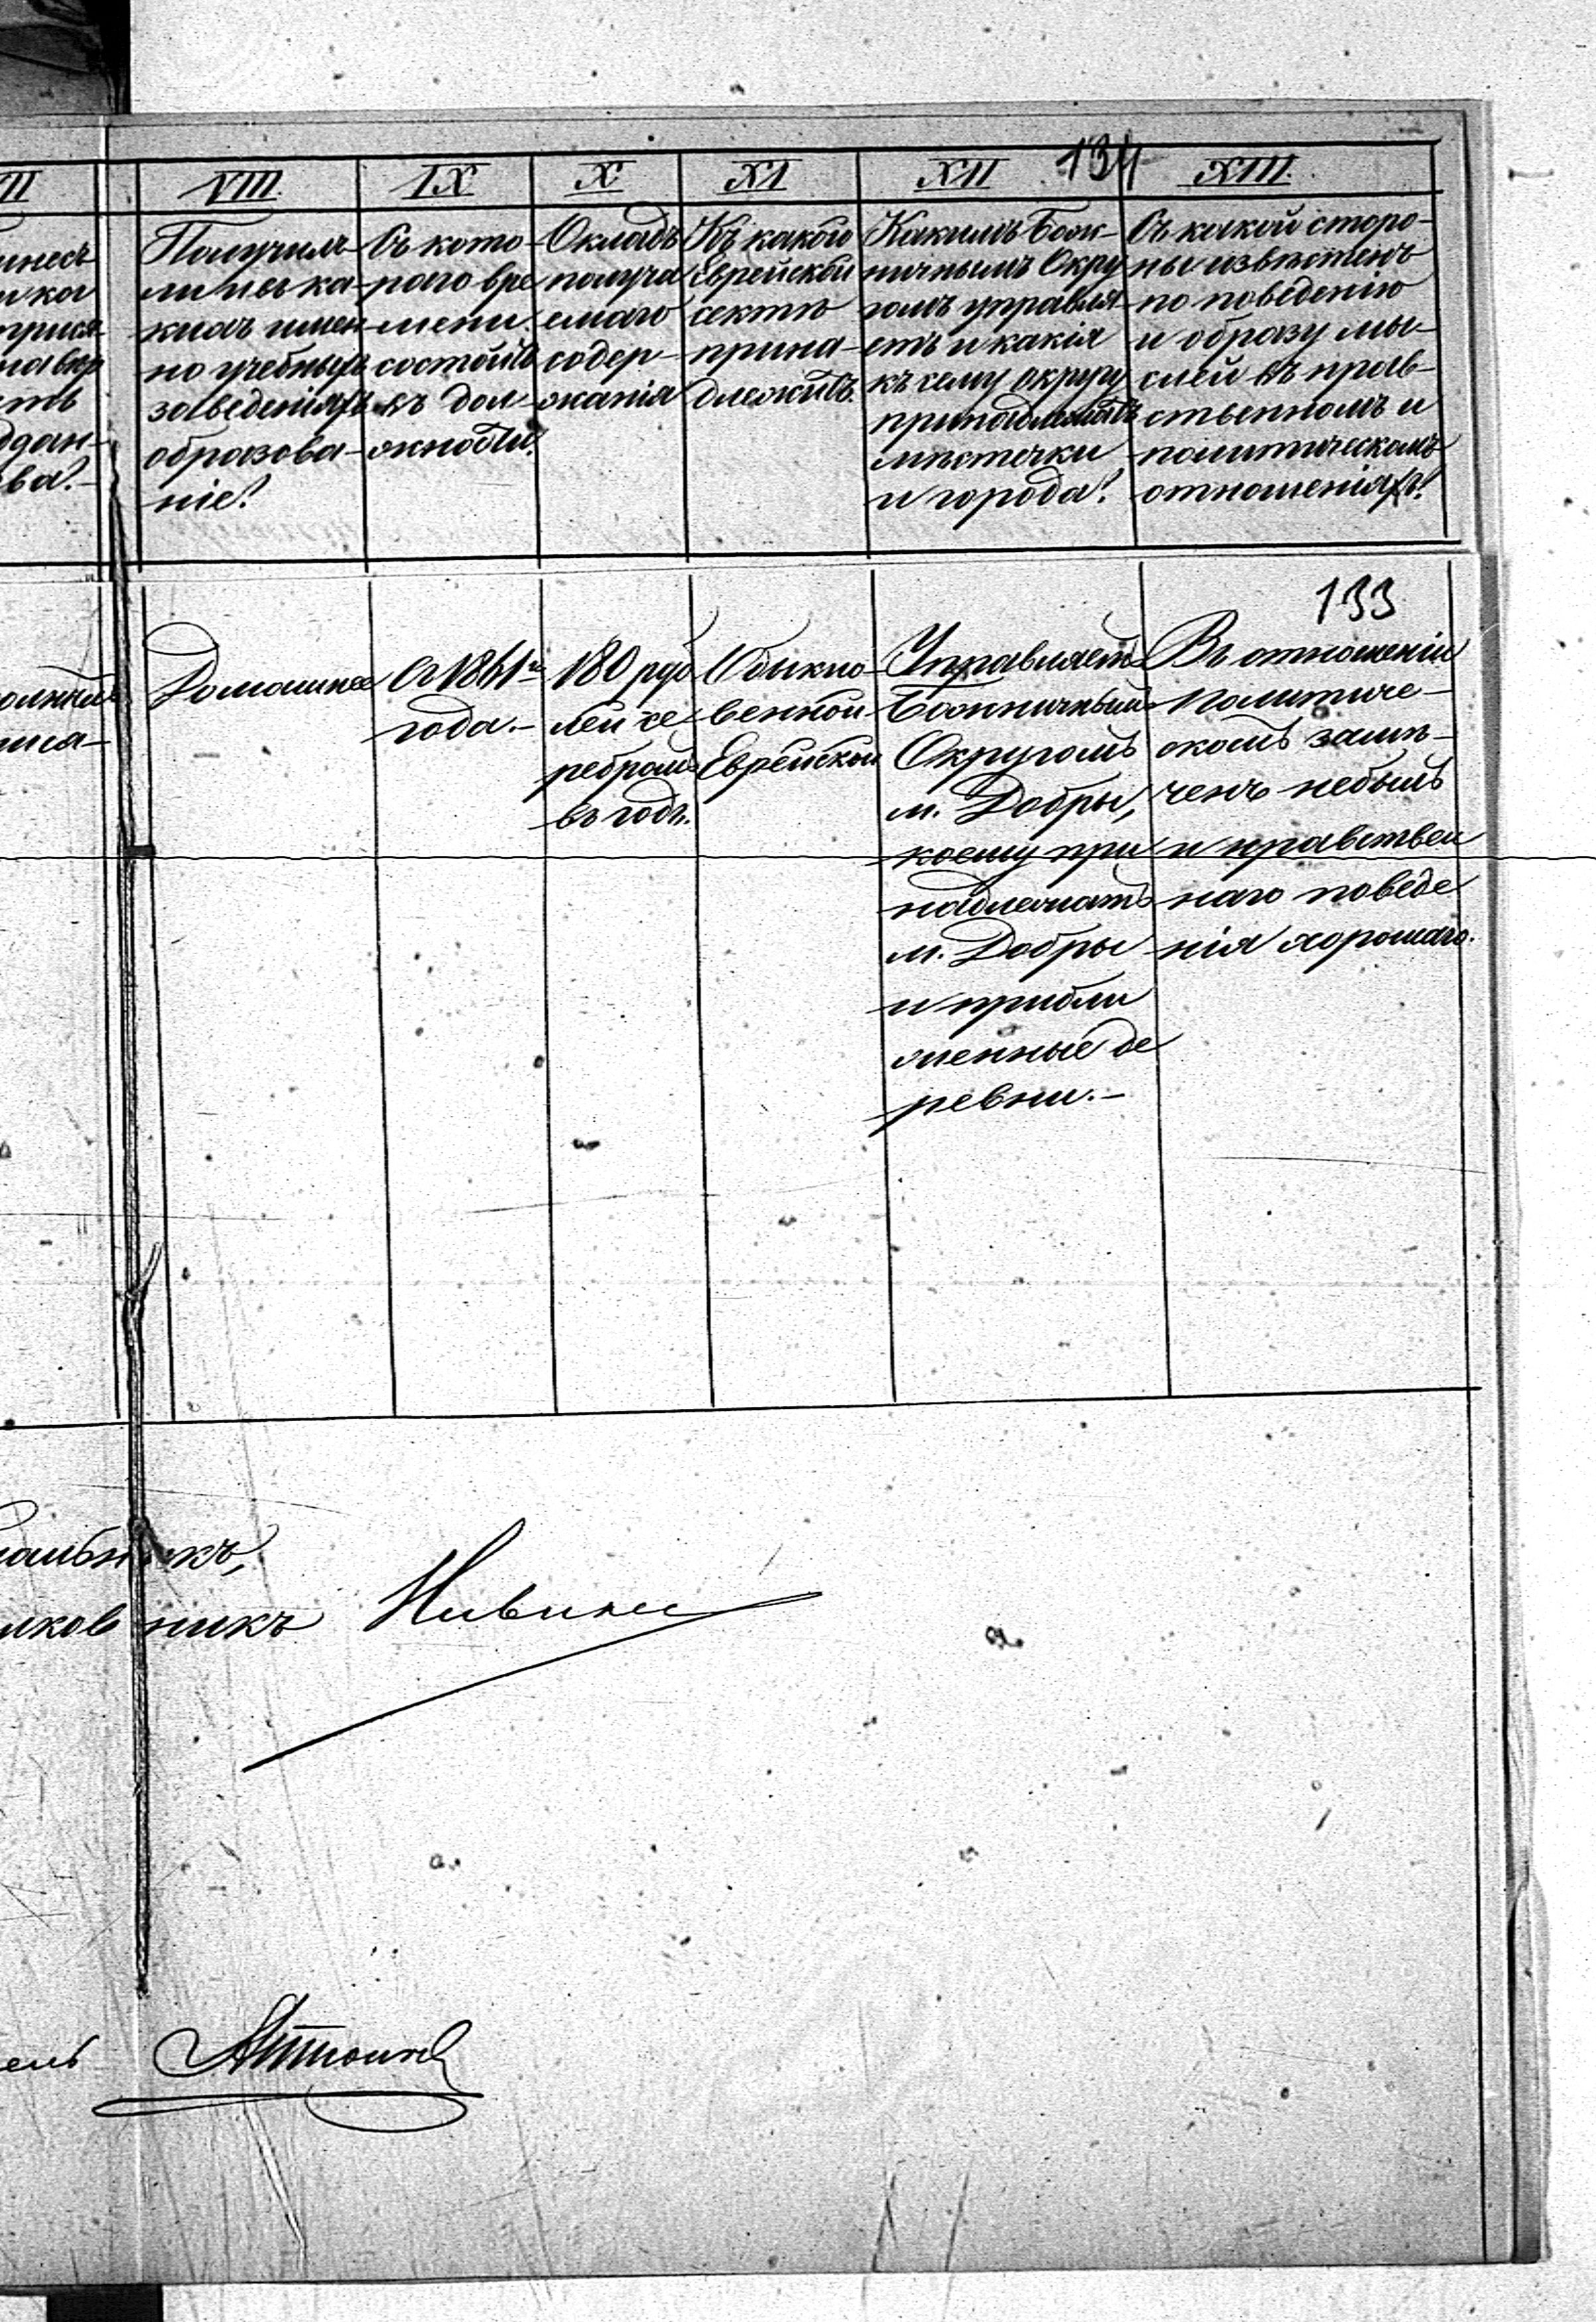 134
VIII.
Получилъ
ли и въ ка-
кихъ имен-
но учебныхъ
заведеніяхъ
образова-
ніе?
IX
Съ кото-
раго вре
мени
состоитъ
въ дол
жности?
X
Окладъ
получа
емаго
содер-
жанія
XI
Къ какой
Еврейской
сектѣ
прина-
длежитъ.
XII
Какимъ Бож-
ничнымъ Окру
гомъ управля-
етъ и какія
къ сему округу
принадлежатъ
мѣстечки
и города?
XIII.
Съ какой сторо-
ны извѣстенъ
по поведенію
и образу мы-
слей въ нрав-
ственномъ и
политическомъ
отношеніяхъ?
133
Домашнее
года.-
180 руб
лей се
ребромъ
въ годъ.
Обыкно-
венной
Еврейской
Управляетъ
Божничнымъ
Округомъ
м. Добры,
коему при
надлежатъ
м. Добры
и прибли
женные де
ревни.-
Въ отношеніи
политиче-
скомъ замѣ-
ченъ небылъ
и нравствен
наго поведе
нія хорошаго.
никъ